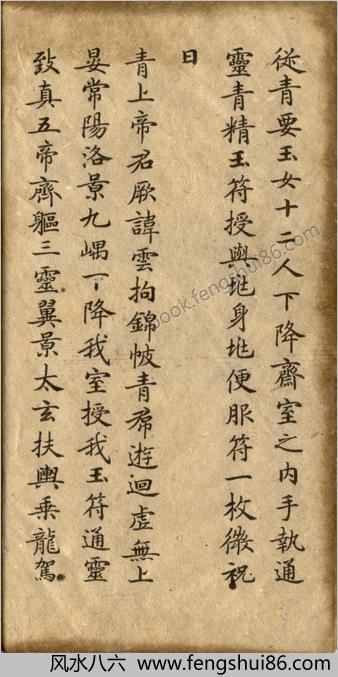 従青要玉女十二人下降齋室之内手執通
靈青精玉符授與兆身兆便服符一枚微祝
曰
青上帝君厥諱雲拘錦帔青帬遊迴虚無上
晏常陽洛景九嵎下降我室授我玉符通靈
致真五帝齊軀三靈翼景太玄扶輿乘龍駕
book.fengshui86.com
风水八六 www.fengshui86.com